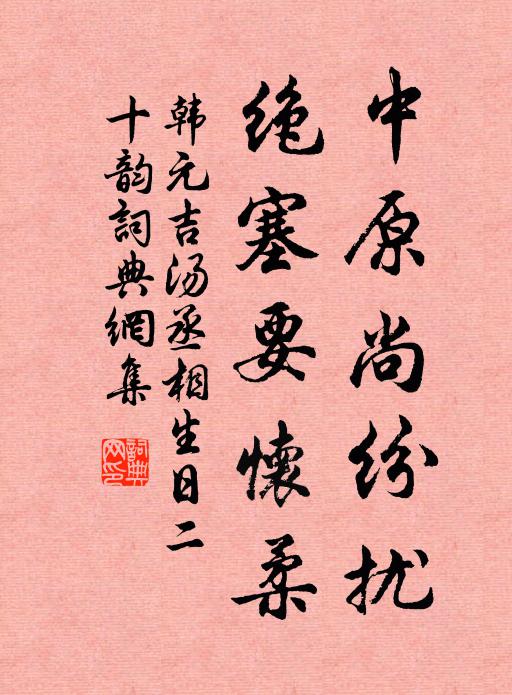 中原尚纷扰
绝塞要懷柔
韩元吉汤丞相生日二
十韵詞典網集
詞典网印